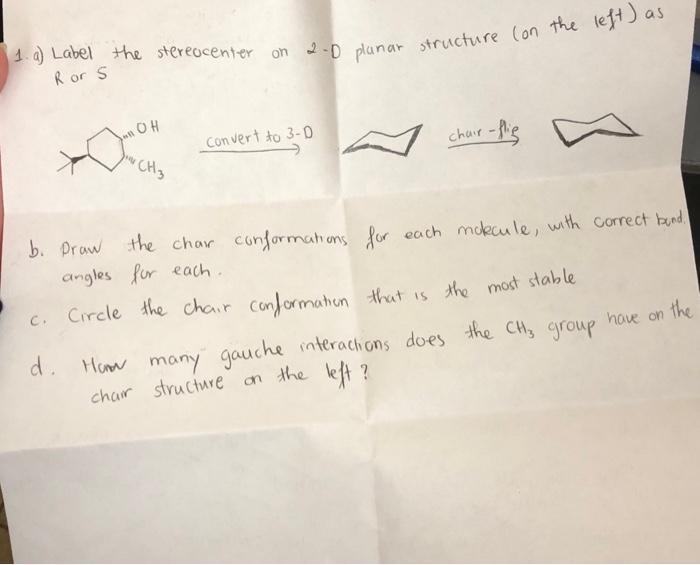 1. a) Label the stereocenter on 2-D planar structure (on the left) as
R or S
OH
CH3
convert to 3-D
chair-flip
b. Draw the chair conformations for each molecule, with correct bond
angles for each.
c. Circle the chair conformation that is the most stable
d. How many gauche interactions does the CH3 group have on the
chair structure on the left?